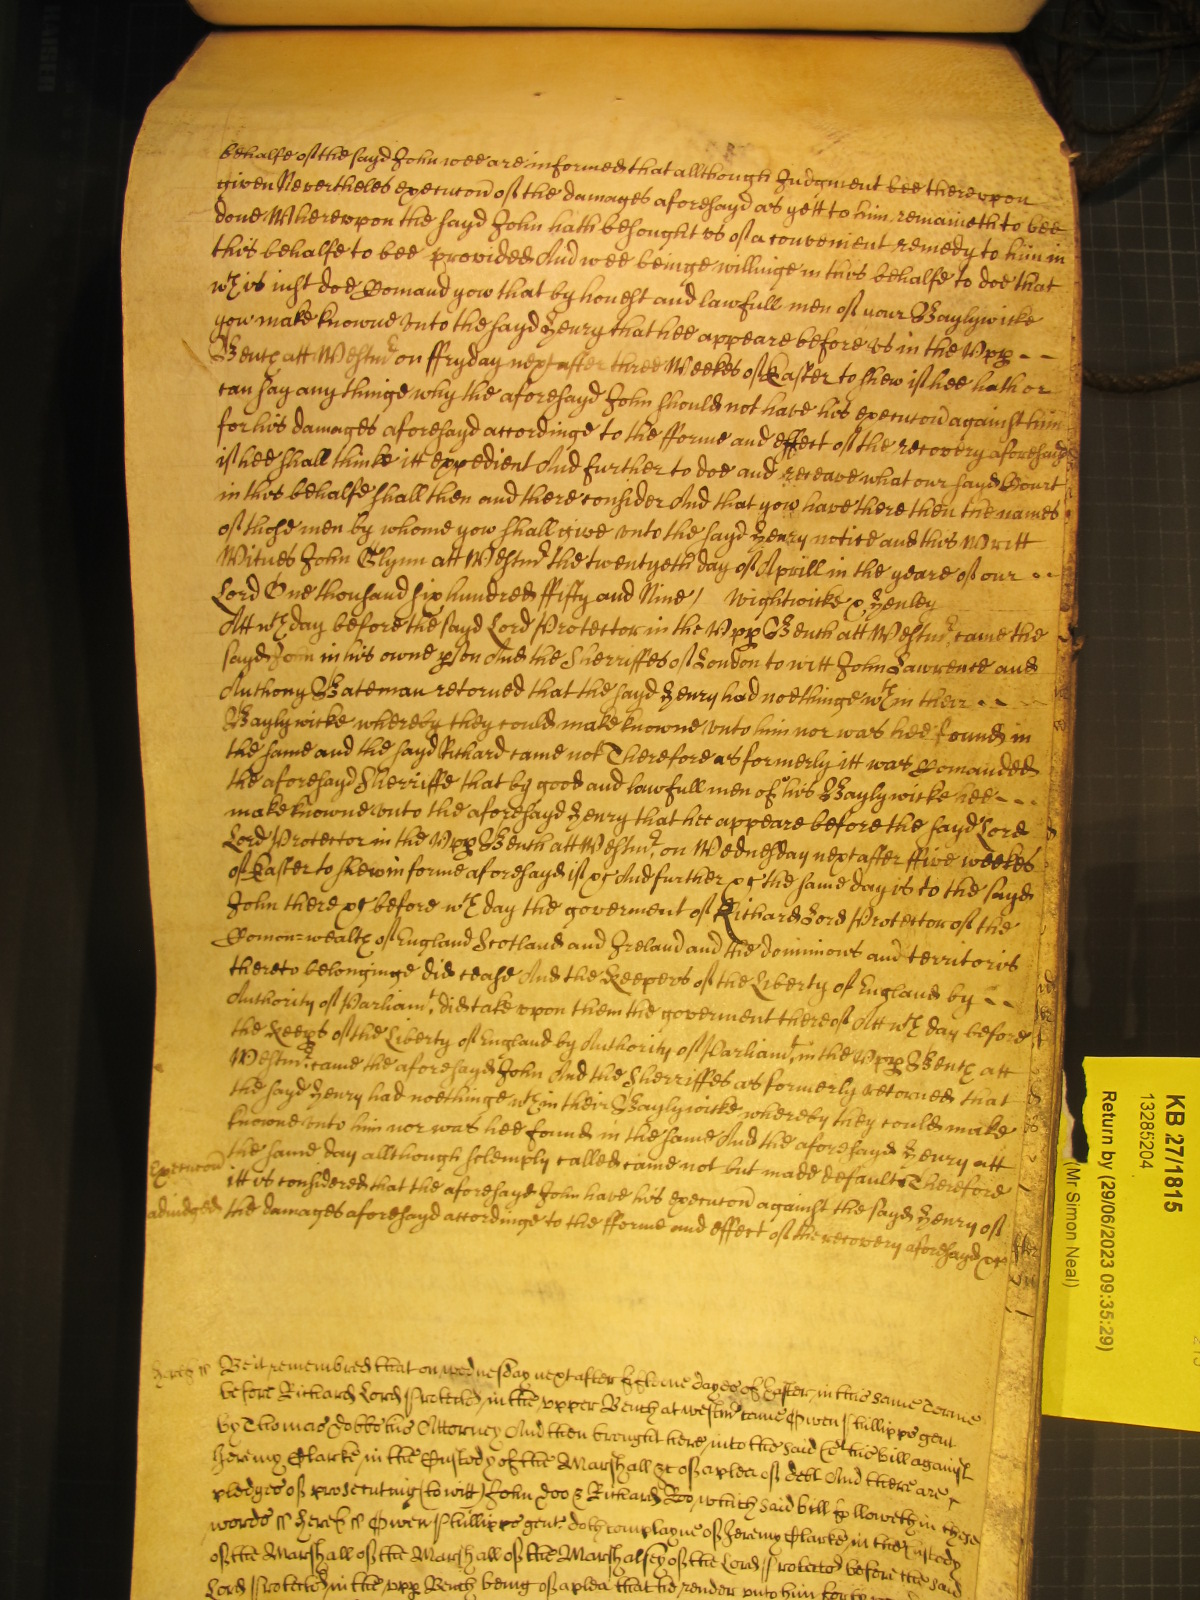 behalfe of the sayd John wee are informed that allthough Judgment bee therevpon
given Nevertheles execucon of the damages aforesayd as yett to him remaineth to bee
done Wherevpon the sayd John hath besought vs of a convenient remedy to him in
this behalfe to bee provided And wee beinge willinge in this behalfe to doe that
wch is iust doe Comand yow that by honest and lawfull men of your Baylywicke
yow make knowne vnto the sayd Henry that hee appeare before vs in the Vpp --
Bench att Westmr on ffryday next after three Weekes of Easter to shew if hee hath or
can say any thinge why the aforesayd John should not have his execucon against him
for his damages aforesayd accordinge to the fforme and effect of the recovery aforesayd
if hee shall thinke itt expedient And further to doe and receave what our sayd Court
in this behalfe shall then and there consider And that yow have there then the names
of those men by whome yow shall give vnto the sayd Henry notice and this Writt
Witnes John Glynn att Westmr the twentyeth day of Aprill in the yeare of our --
Lord One thousand six hundred ffifty and Nine / Wightwicke p Henley
Att wch day before the sayd Lord Protector in the Vpp Bench att Westmr came the
sayd John in his owne pson And the Sherriffes of London to witt John Lawrence and
Anthony Bateman retorned that the sayd Henry had noethinge wthin their --
Baylywicke whereby they could make knowne vnto him nor was hee found in
the same and the sayd Richard came not Therefore as formerly itt was Comanded
the aforesayd Sherriffe that by good and lawfull men of his Baylywicke hee ---
make knowne vnto the aforesayd Henry that hee appeare before the sayd Lord
Lord Protector in the Vpp Bench att Westmr on Wednesday next after ffive weekes
of Easter to shew in forme aforesayd if &c And further &c the same day is to the sayd
John there &c before wch day the goverment of Richard Lord Protector of the
Comon=wealth of England Scotland and Ireland and the dominions and territoris
thereto belonginge did cease And the Keepers of the Liberty of England by --
Authority of Parliamt did take vpon them the goverment thereof Att wch day before
the Keeps of the Liberty of England by Authority of Parliamt in the Vpp Bench att
Westmr came the aforesayd John And the Sherriffes as formerly retorned that
the sayd Henry had noethinge wthin their Baylywicke whereby they could make
knowne vnto him nor was hee found in the same And the aforesayd Henry att
Execucon the same day allthough solemply called came not but made default Therefore
itt is considered that the aforesayd John have his execucon against the sayd Henry of
adiudged the damages aforesayd accordinge to the fforme and effect of the recovery aforesayd &c
Heref ss Be it remembred that on wednesday next after fifteene dayes of Easter in this same Terme
before Richard Lord Protector in the vpper Bench at westmr came Owen Phillipps gent
by Thomas his Attorney And then brought here into the said Ct the bill against
Heremy Clarke in the Custody of the Marshall &c of a plea of debt And there are
pledges of prosecuting (to witt) John Doo & Richard Roo which said bill followeth in these
words ss Heref ss Owen Phillipps gent doth complayne of Jeremy Clarke in the Custody
of the Marshall of the Marshall of the Marshalsey of the Lord Protector before the said
Lord Protector in the vpp Bench being of a plea that he render vnto him
KB 27/1815
13285204
Return by (29/06/2023 09:35:29)
(Mr Simon Neal)